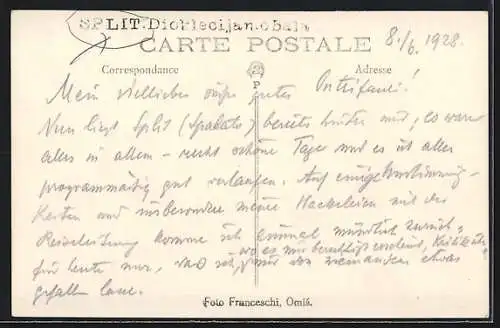 SPLIT. Dioklecijan. obala
CARTE POSTALE 8./6. 1928.
Correspondance Adresse
Mein vielliebes gutes
Nun liegt Split (Spalato) bereits hinter mir, es waren
alles in allem - recht schöne Tage und es ist alles
programmäßig gut verlaufen. Auf einige
Karten und insbesondere meine mit der
Reiseleitung komme ich einmal mündlich zurück,
für heute nur, daß ich mir von niemandem etwas
gefallen lasse.
Foto Franceschi, Omiš.